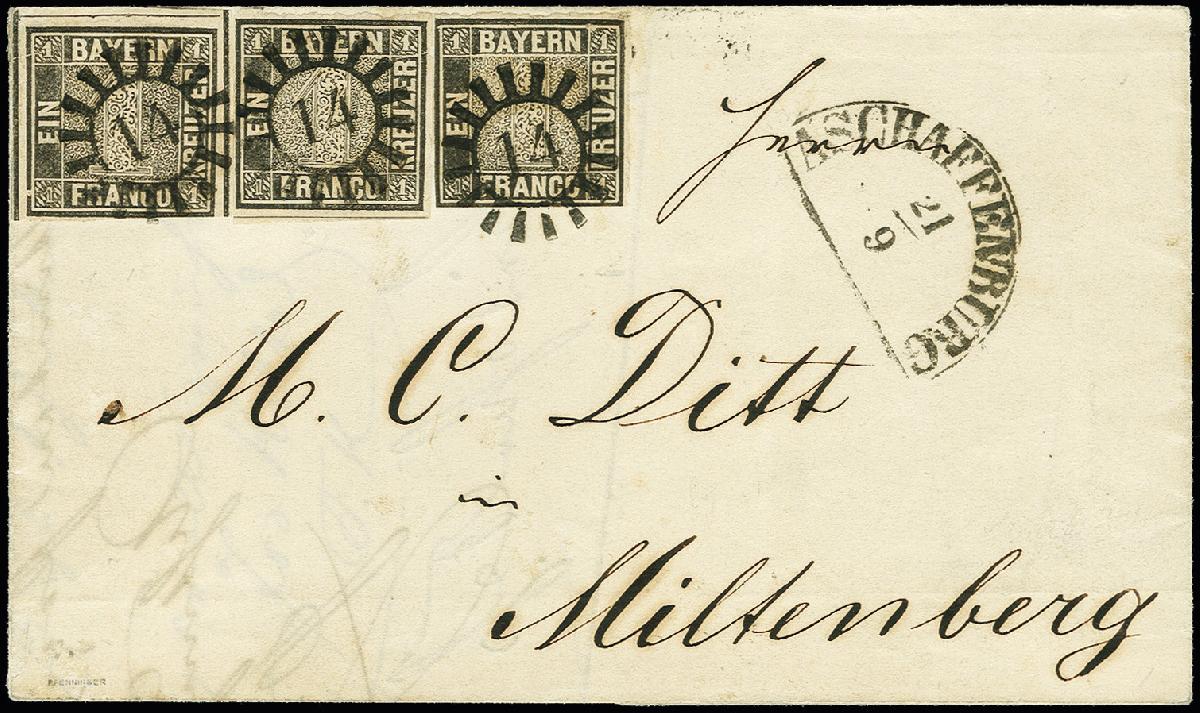 1 BAYERN 1
EIN
KREUZER
1 FRANCO 1
14
1 BAYERN 1
EIN
KREUZER
1 FRANCO 1
14
1 BAYERN 1
EIN
KREUZER
1 FRANCO 1
14
Herrn
ASCHAFFENBURG
21
9
M. C. Ditt
in
Miltenberg
PFENNINGER